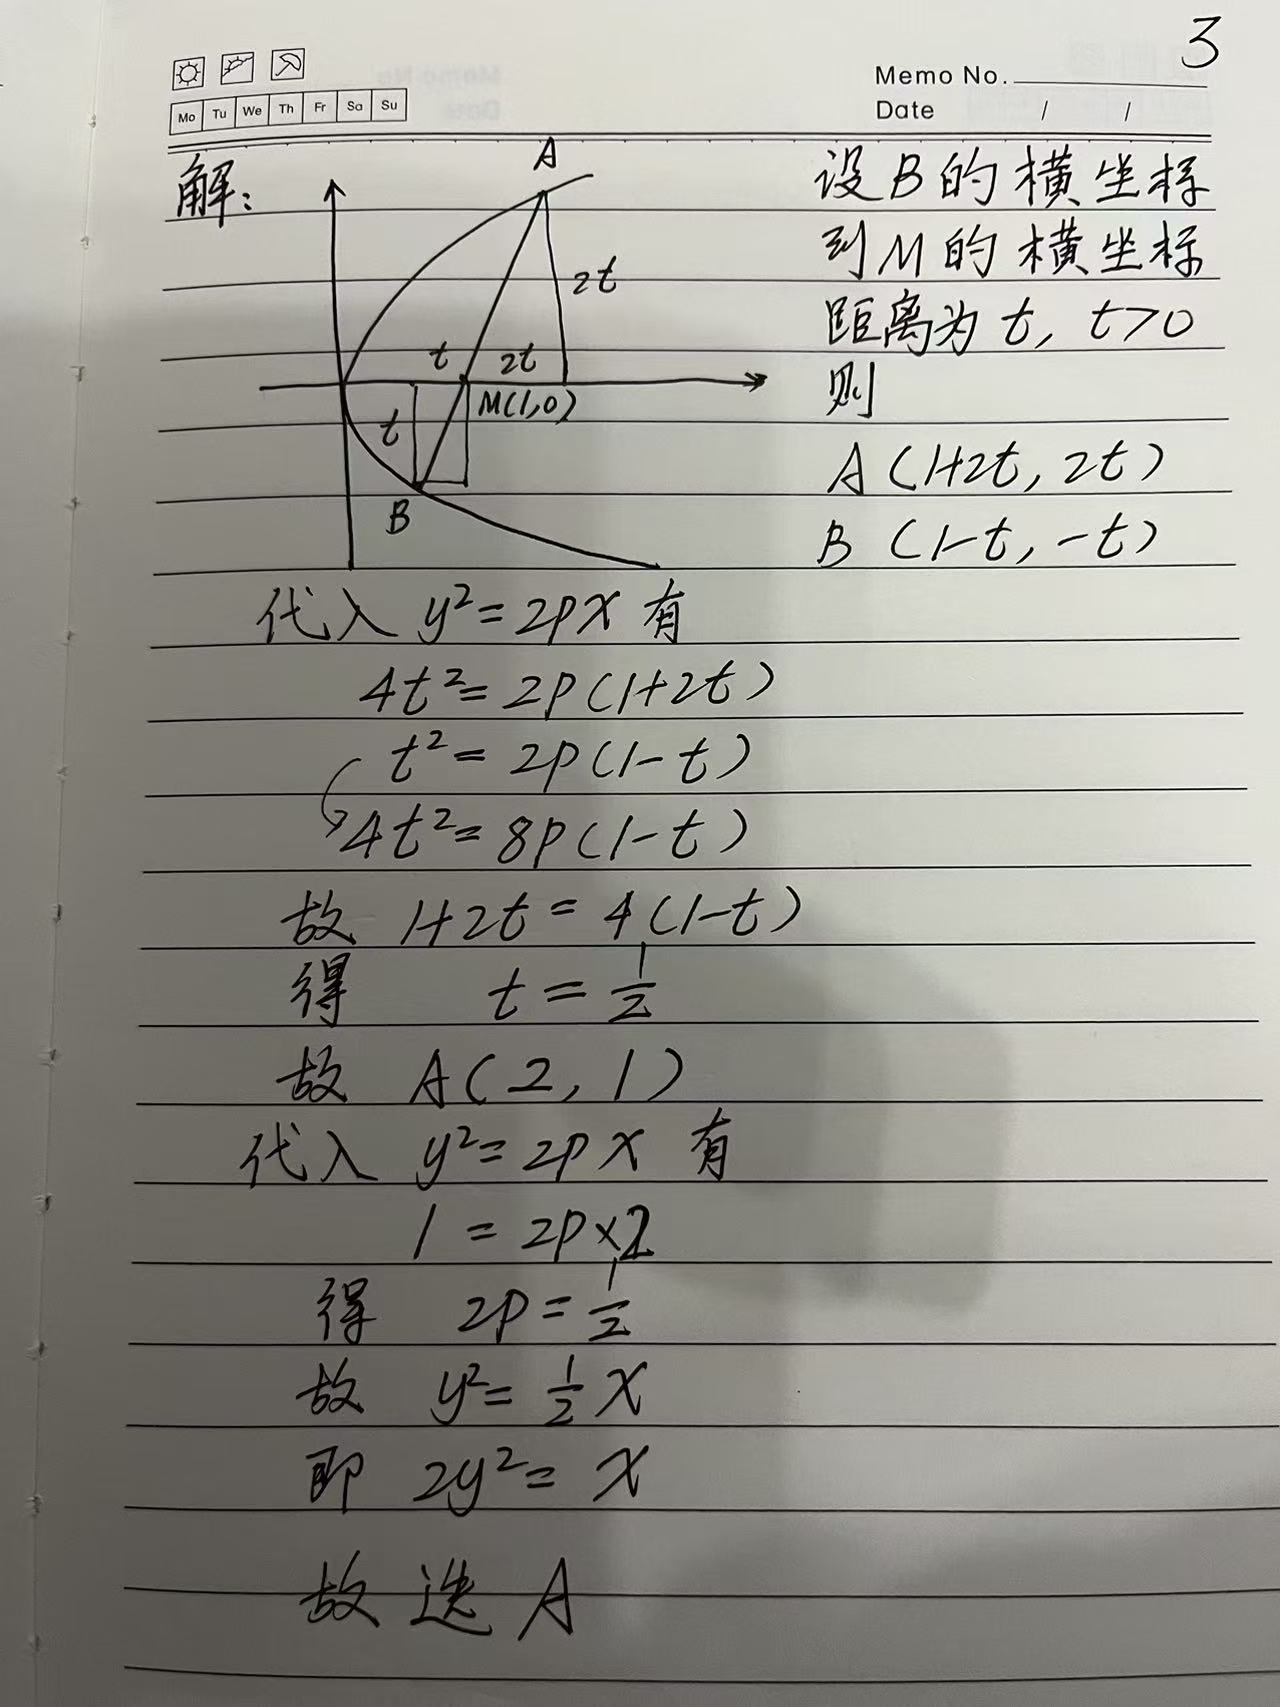 3
Memo No.
Date / /
Mo Tu We Th Fr Sa Su
解:
A
2t
t 2t
M(1,0)
t
B
设B的横坐标
到M的横坐标
距离为t, t>0
则
A(1+2t, 2t)
B(1-t, -t)
代入 y²=2px 有
4t²=2p(1+2t)
t²=2p(1-t)
4t²=8p(1-t)
故 1+2t=4(1-t)
得 t=1/2
故 A(2, 1)
代入 y²=2px 有
1=2p×2
得 2p=1/2
故 y²=1/2 x
即 2y²=x
故选A